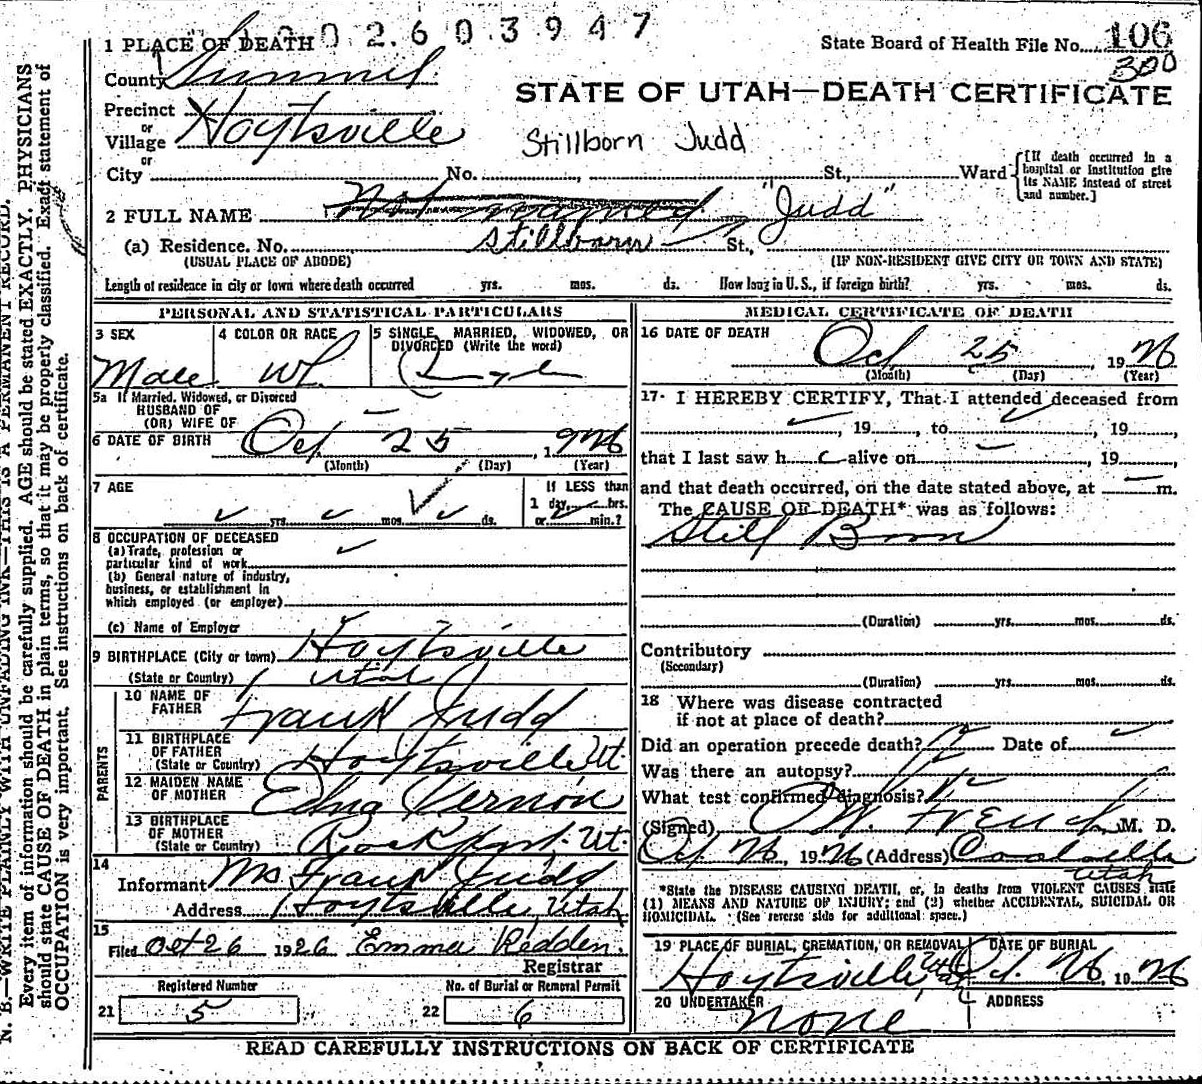 002603947
1 PLACE OF DEATH
State Board of Health File No. 106
300
County Summit
STATE OF UTAH—DEATH CERTIFICATE
Precinct
or
Village Hoytsville
Stillborn Judd
or
City No. St., Ward
[If death occurred in a hospital or institution give its NAME instead of street and number.]
2 FULL NAME Not named "Judd"
(a) Residence. No. Stillborn St.,
(USUAL PLACE OF ABODE) (IF NON-RESIDENT GIVE CITY OR TOWN AND STATE)
Length of residence in city or town where death occurred yrs. mos. ds. How long in U. S., if foreign birth? yrs. mos. ds.
PERSONAL AND STATISTICAL PARTICULARS
3 SEX 4 COLOR OR RACE 5 SINGLE, MARRIED, WIDOWED, OR DIVORCED (Write the word)
Male W. Single
5a If Married, Widowed, or Divorced
HUSBAND OF
(OR) WIFE OF
6 DATE OF BIRTH Oct 25, 1926
(Month) (Day) (Year)
7 AGE If LESS than
1 day, hrs.
yrs. mos. ds. or min.?
8 OCCUPATION OF DECEASED
(a) Trade, profession or
particular kind of work
(b) General nature of industry,
business, or establishment in
which employed (or employer)
(c) Name of Employer
9 BIRTHPLACE (City or town) Hoytsville
(State or Country) Utah
PARENTS
10 NAME OF FATHER Frank Judd
11 BIRTHPLACE OF FATHER (State or Country) Hoytsville Ut.
12 MAIDEN NAME OF MOTHER Edna Vernon
13 BIRTHPLACE OF MOTHER (State or Country) Rockport, Ut.
14
Informant Ms Frank Judd
Address Hoytsville, Utah
15
Filed Oct 26 1926 Emma Redden.
Registrar
Registered Number No. of Burial or Removal Permit
21 5 22 6
MEDICAL CERTIFICATE OF DEATH
16 DATE OF DEATH
Oct 25, 1926
(Month) (Day) (Year)
17. I HEREBY CERTIFY, That I attended deceased from
, 19 , to , 19 ,
that I last saw h alive on , 19 ,
and that death occurred, on the date stated above, at m.
The CAUSE OF DEATH* was as follows:
Still Born
(Duration) yrs. mos. ds.
Contributory
(Secondary)
(Duration) yrs. mos. ds.
18 Where was disease contracted
if not at place of death?
Did an operation precede death? Date of
Was there an autopsy?
What test confirmed diagnosis?
(Signed) French, M. D.
Oct 26, 1926 (Address) Coalville
Utah
*State the DISEASE CAUSING DEATH, or, in deaths from VIOLENT CAUSES, state
(1) MEANS AND NATURE OF INJURY; and (2) whether ACCIDENTAL, SUICIDAL OR
HOMICIDAL. (See reverse side for additional space.)
19 PLACE OF BURIAL, CREMATION, OR REMOVAL DATE OF BURIAL
Hoytsville Utah Oct. 26, 1926
20 UNDERTAKER ADDRESS
none
READ CAREFULLY INSTRUCTIONS ON BACK OF CERTIFICATE
N. B.—WRITE PLAINLY WITH UNFADING INK—THIS IS A PERMANENT RECORD.
Every item of information should be carefully supplied. AGE should be stated EXACTLY. PHYSICIANS
should state CAUSE OF DEATH in plain terms, so that it may be properly classified. Exact statement of
OCCUPATION is very important. See instructions on back of certificate.